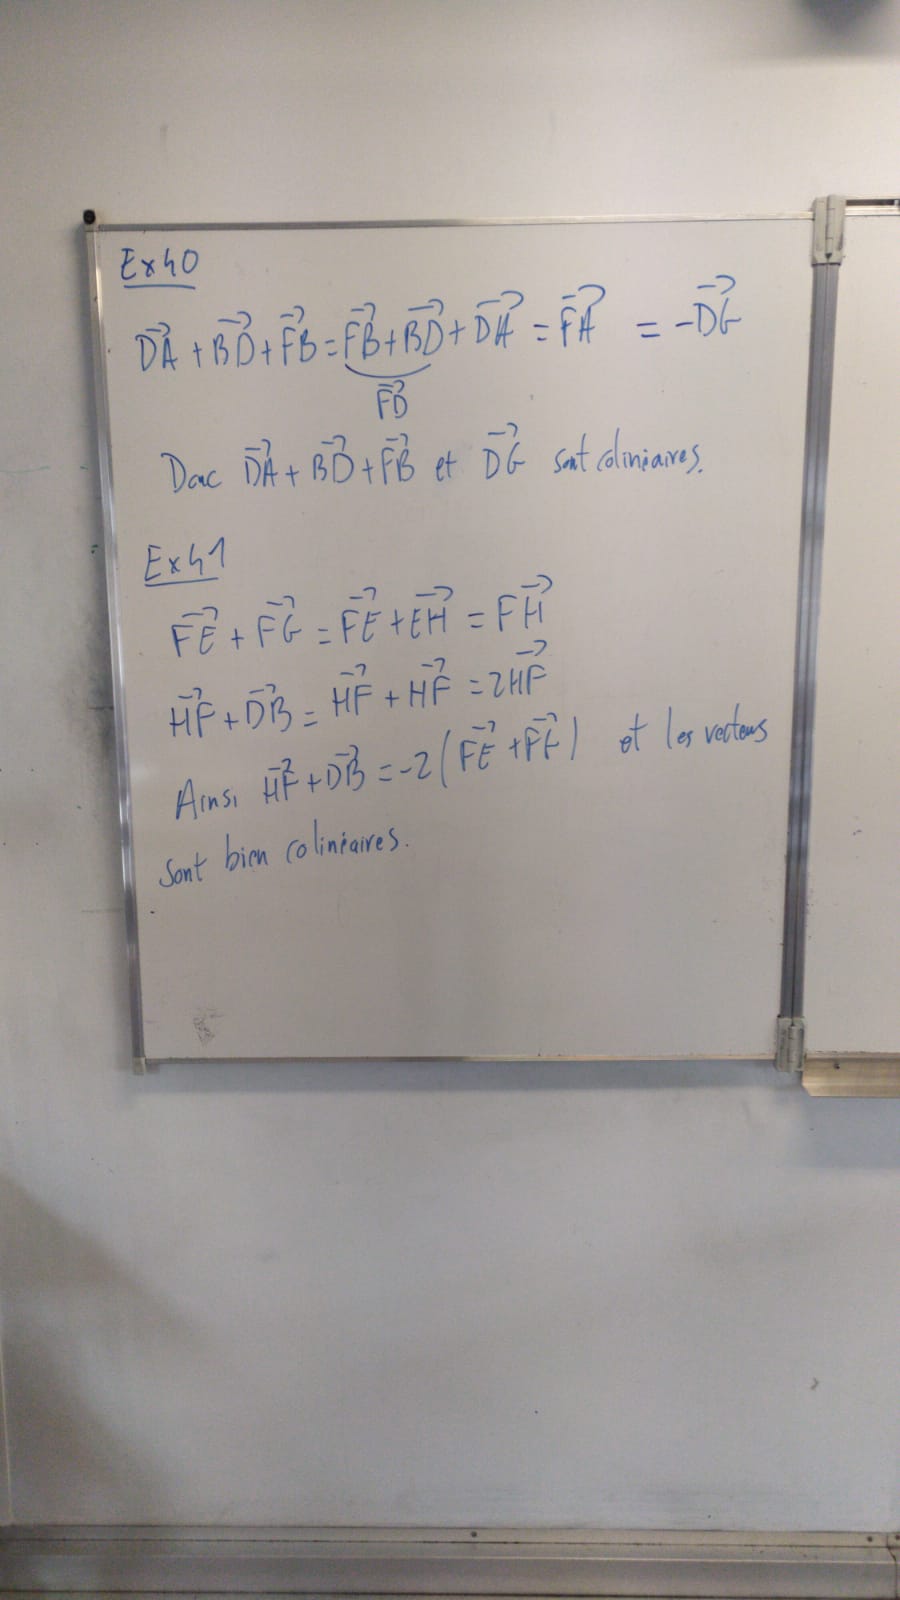 Ex40
DA⃗ + BD⃗ + FB⃗ = FB⃗ + BD⃗ + DA⃗ = FA⃗ = -DG⃗
FD⃗
Donc DA⃗ + BD⃗ + FB⃗ et DG⃗ sont colinéaires.
Ex41
FE⃗ + FG⃗ = FE⃗ + EH⃗ = FH⃗
HF⃗ + DB⃗ = HF⃗ + HF⃗ = 2HF⃗
Ainsi HF⃗ + DB⃗ = -2(FE⃗ + FG⃗) et les vecteurs
sont bien colinéaires.